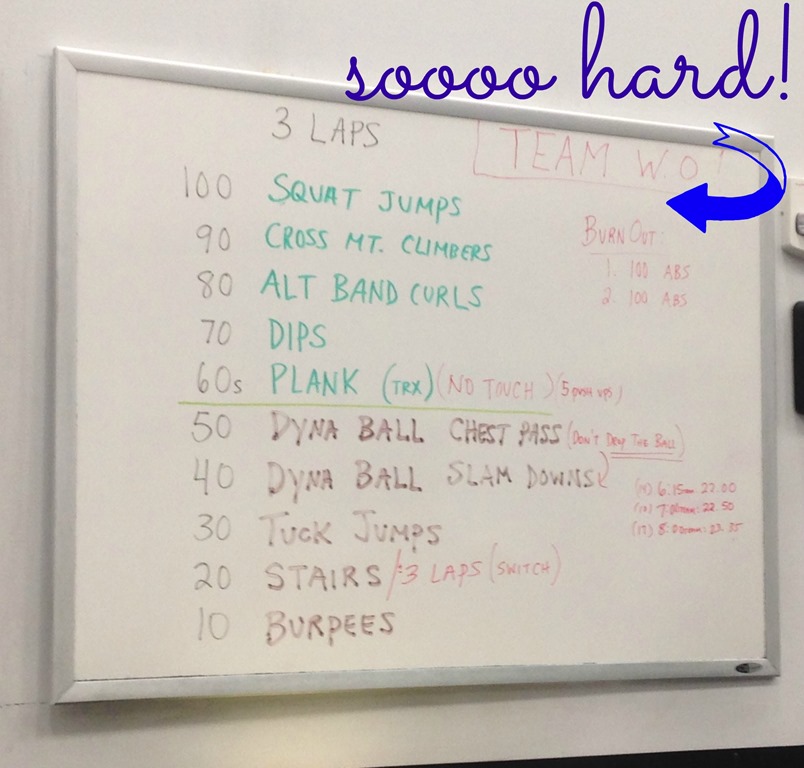 soooo hard!
3 LAPS
TEAM W.O!
100 SQUAT JUMPS
90 CROSS MT. CLIMBERS
80 ALT BAND CURLS
70 DIPS
60s PLANK (TRX) (NO TOUCH) (5 PUSH UPS)
50 DYNA BALL CHEST PASS (DON'T DROP THE BALL)
40 DYNA BALL SLAM DOWNS
30 TUCK JUMPS
20 STAIRS / 3 LAPS (SWITCH)
10 BURPEES
BURN OUT:
1. 100 ABS
2. 100 ABS
6:15am 22.00
7:00am: 22.50
(17) 8:00am: 23.35